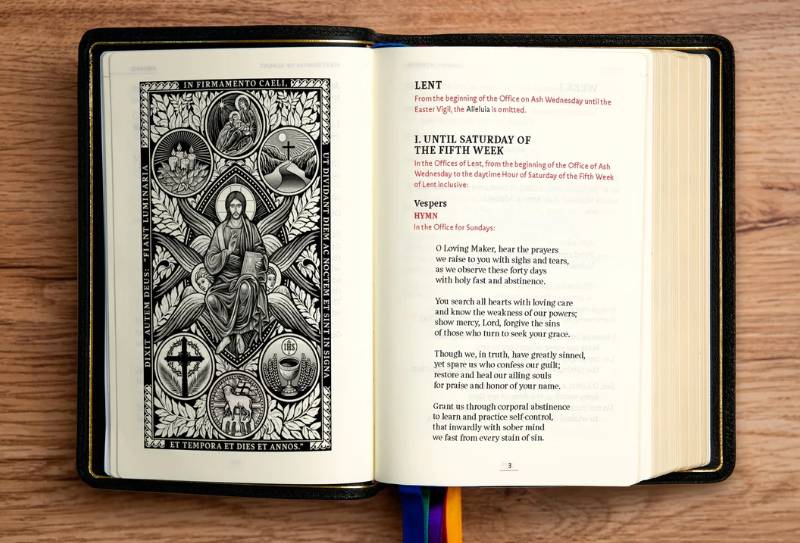 IN FIRMAMENTO CAELI,
DIXIT AUTEM DEUS: "FIANT LUMINARIA
UT DIVIDANT DIEM AC NOCTEM ET SINT IN SIGNA
IHS
ET TEMPORA ET DIES ET ANNOS."
LENT
From the beginning of the Office on Ash Wednesday until the
Easter Vigil, the Alleluia is omitted.
I. UNTIL SATURDAY OF
THE FIFTH WEEK
In the Offices of Lent, from the beginning of the Office of Ash
Wednesday to the daytime Hour of Saturday of the Fifth Week
of Lent inclusive:
Vespers
HYMN
In the Office for Sundays:
O Loving Maker, hear the prayers
we raise to you with sighs and tears,
as we observe these forty days
with holy fast and abstinence.
You search all hearts with loving care
and know the weakness of our powers;
show mercy, Lord, forgive the sins
of those who turn to seek your grace.
Though we, in truth, have greatly sinned,
yet spare us who confess our guilt;
restore and heal our ailing souls
for praise and honor of your name.
Grant us through corporal abstinence
to learn and practice self-control,
that inwardly with sober mind
we fast from every stain of sin.
3